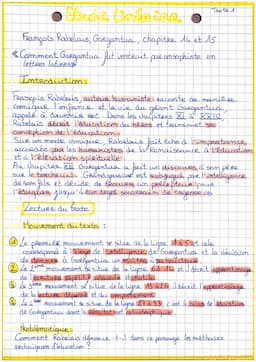 Étude linéaire
Texte 1
François Rabelais, Gargantua, chapitre 14 et 15
« Comment Gargantua fut instruit par un sophiste en
lettres latines »
Introduction:
François Rabelais, auteur humaniste raconte de manière
comique l'enfance et la vie du géant Gargantua
appelé à devenir roi. Dans les chapitres XI à XXIV,
Rabelais décrit l'éducation du héros et transmet sa
conception de l'éducation.
Sur un mode comique, Rabelais fait écho à l'importance,
accordée par les humanistes de la Renaissance à l'éducation
et à l'élévation spirituelle.
Au chapitre XIII Gargantua a fait un discours à son père
sur le torchecul. Grandgousier est subjugué par l'intelligence
de son fils et décide de trouver un précepteur pour
l'éduquer jusqu'à
Lecture du texte.
Mouvement du texte :
1 Le premier mouvement se situe de la ligne 1 à 5 et cela
correspond à l'éloge de l'intelligence de Gargantua et la décision
de donner à Gargantua un maître
2 Le 2ème mouvement se situe de la ligne 6 à 14 et décrit l'apprentissage
de
3 Le 3ème mouvement se situe de la ligne 15 à 26, décrit l'apprentissage
de la lecture, digéré et du comportement.
4 Le 4ème mouvement se situe de la ligne 27 à 39, c'est le bilan de l'éducation
de Gargantua dont le résultat est catastrophique
Problématique:
Comment Rabelais dénonce-t-il dans ce passage les méthodes
techniques d'éducation ?